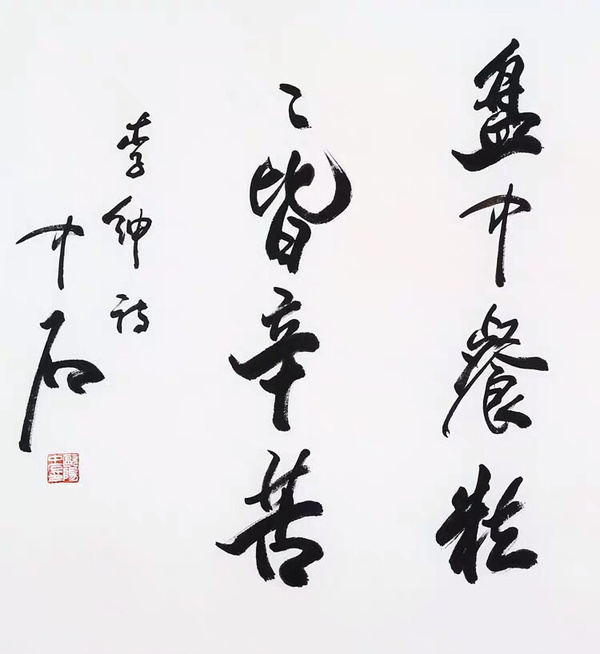 盘中餐粒
〻皆辛苦
李绅诗
中石